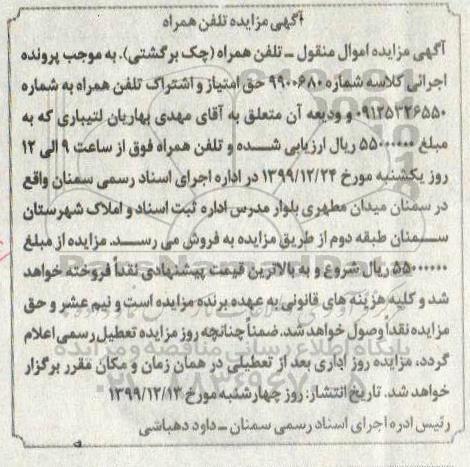 آگهی مزایده تلفن همراه
آگهی مزایده اموال منقول ـ تلفن همراه (چک برگشتی). به موجب پرونده
اجرائی کلاسه شماره ۹۹۰۰۶۸۰ حق امتیاز و اشتراک تلفن همراه به شماره
۰۹۱۲۵۳۲۶۵۵۰ و ودیعه آن متعلق به آقای مهدی بهاریان لتیباری که به
مبلغ ۵۵۰۰۰۰۰۰ ریال ارزیابی شده و تلفن همراه فوق از ساعت ۹ الی ۱۲
روز یکشنبه مورخ ۱۳۹۹/۱۲/۲۴ در اداره اجرای اسناد رسمی سمنان واقع
در سمنان میدان مطهری بلوار مدرس اداره ثبت اسناد و املاک شهرستان
سمنان طبقه دوم از طریق مزایده به فروش می رسد. مزایده از مبلغ
۵۵۰۰۰۰۰۰ ریال شروع و به بالاترین قیمت پیشنهادی نقداً فروخته خواهد
شد و کلیه هزینه های قانونی به عهده برنده مزایده است و نیم عشر و حق
مزایده نقداً وصول خواهد شد. ضمناً چنانچه روز مزایده تعطیل رسمی اعلام
گردد، مزایده روز اداری بعد از تعطیلی در همان زمان و مکان مقرر برگزار
خواهد شد. تاریخ انتشار: روز چهارشنبه مورخ ۱۳۹۹/۱۲/۱۳
رئیس ادره اجرای اسناد رسمی سمنان ـ داود دهباشی